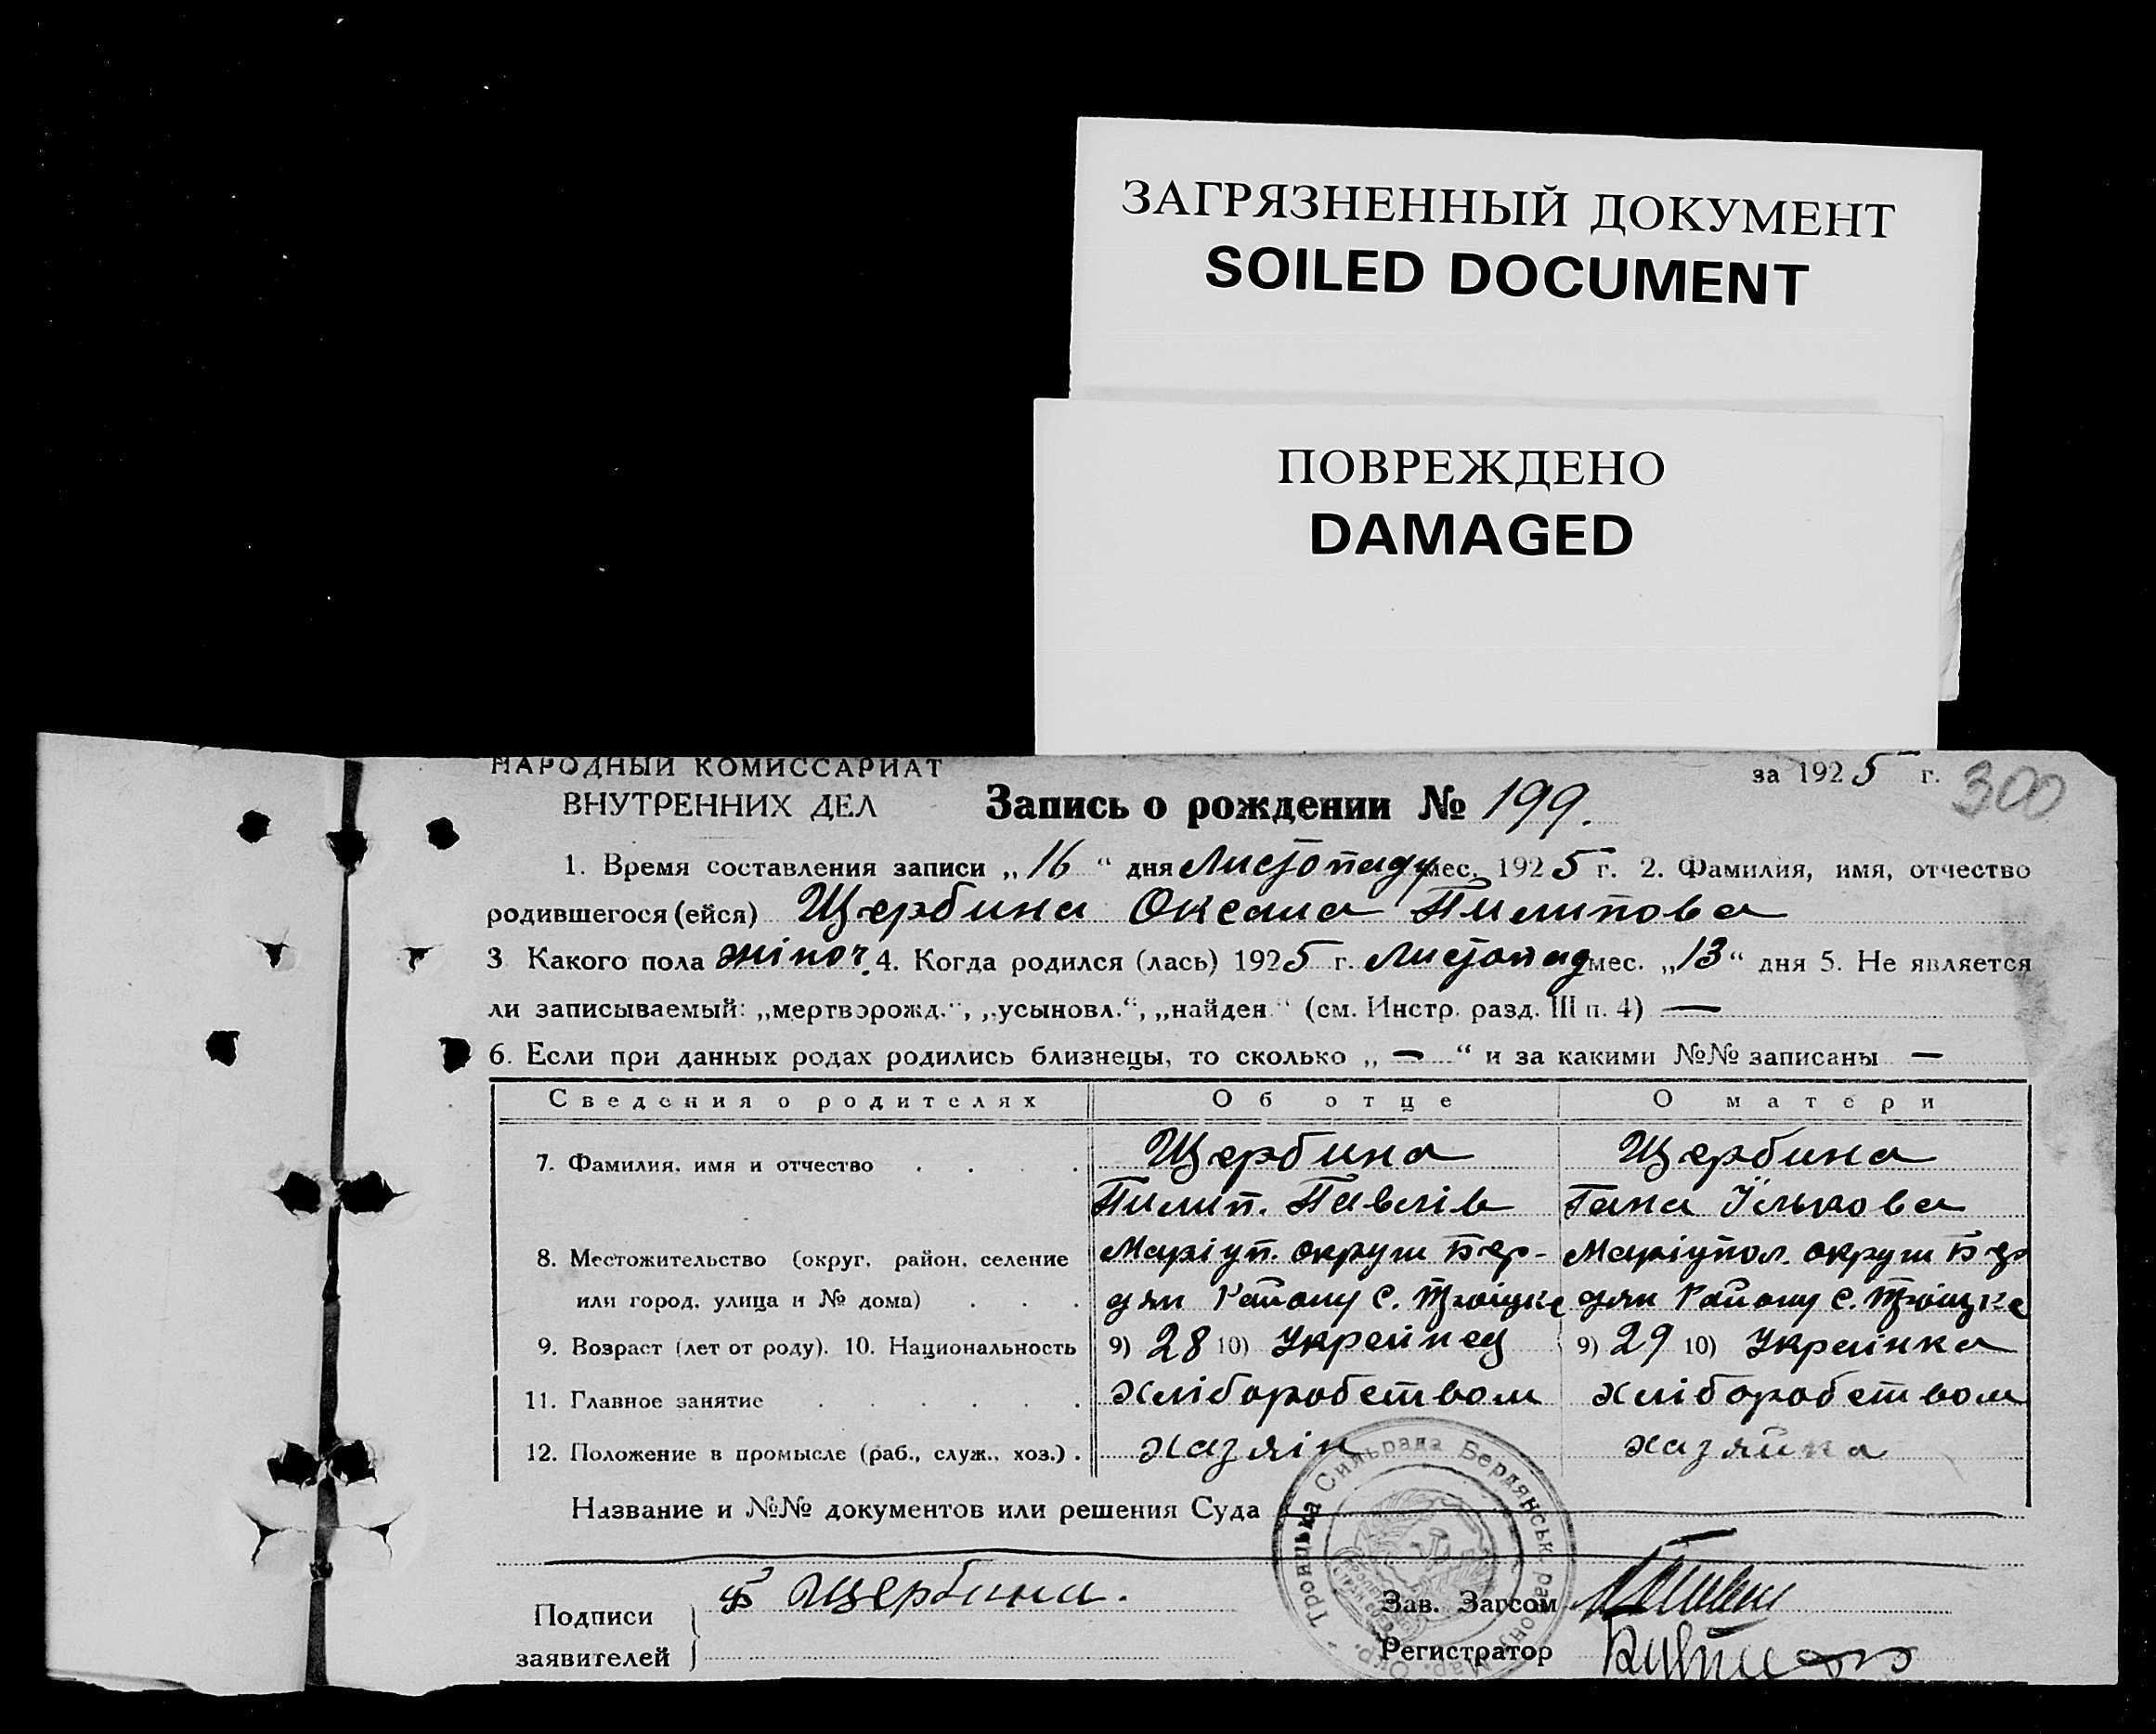 ЗАГРЯЗНЕННЫЙ ДОКУМЕНТ
SOILED DOCUMENT
ПОВРЕЖДЕНО
DAMAGED
НАРОДНЫЙ КОМИССАРИАТ
ВНУТРЕННИХ ДЕЛ
за 1925 г. 300
Запись о рождении № 199.
1. Время составления записи „16“ дня Листопаду мес. 1925 г. 2. Фамилия, имя, отчество
родившегося (ейся) Щербина Оксана Пилипова
3 Какого пола жіноч. 4. Когда родился (лась) 1925 г. Листопад мес. „13“ дня 5. Не является
ли записываемый: „мертворожд.“, „усыновл.“, „найден“ (см. Инстр. разд. III п. 4) —
6. Если при данных родах родились близнецы, то сколько „—“ и за какими №№ записаны —
Сведения о родителях Об отце О матери
7. Фамилия, имя и отчество . . . . Щербина Щербина
Пилип. Павлів Гана Ількова
8. Местожительство (округ, район, селение Маріуп. округи Бер- Маріупол. округи Бер
или город, улица и № дома) . . . дян Району с. Троіцке дян Району с. Троіцке
9. Возраст (лет от роду). 10. Национальность 9) 28 10) Украінец 9) 29 10) Украінка
11. Главное занятие . . . . . . хліборобством хліборобством
12. Положение в промысле (раб., служ., хоз.) . хазяін хазяйка
Название и №№ документов или решения Суда
Троицька Сильрада Бердянськ. району Мар. Окр.
Подписи
заявителей
Ф Щербина.
Зав. Загсом
Регистратор